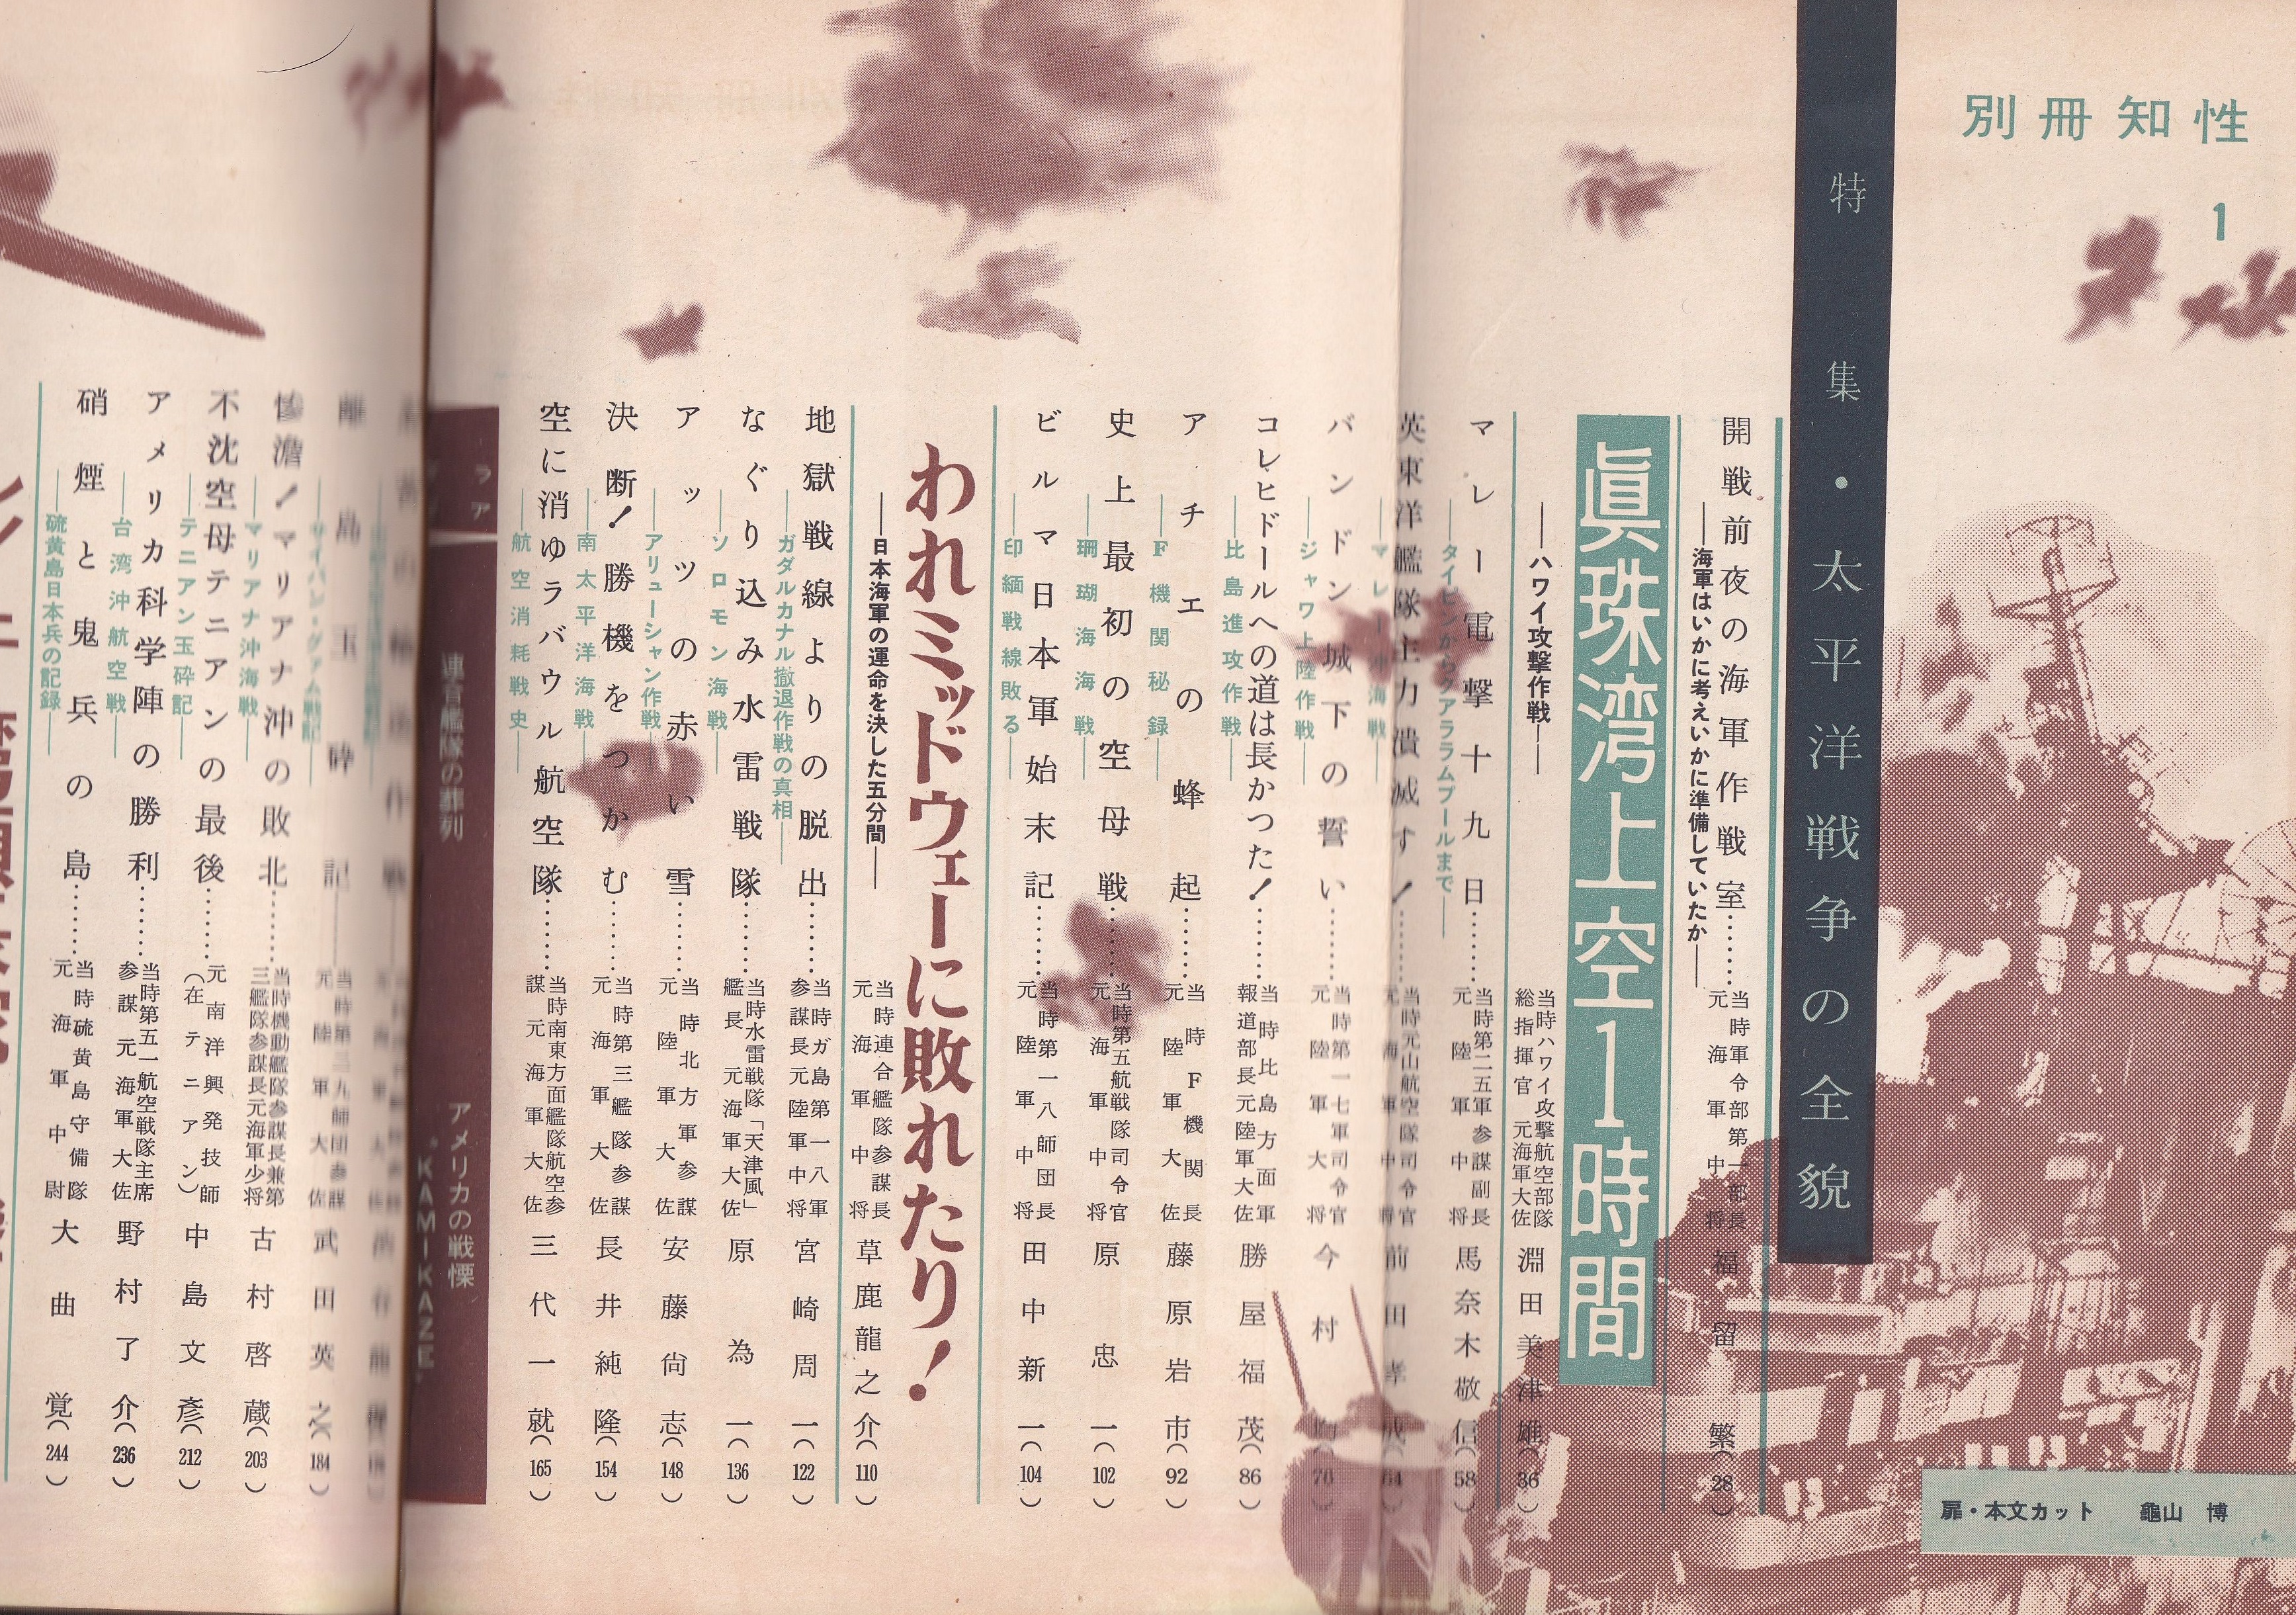 別冊知性
1
特集・太平洋戦争の全貌
開戦前夜の海軍作戦室………
――海軍はいかに考えいかに準備していたか――
当時軍令部第一部長
元海軍中将
福留繁(28)
眞珠湾上空1時間
――ハワイ攻撃作戦――
当時ハワイ攻撃航空部隊
総指揮官 元海軍大佐
淵田美津雄(36)
マレー電撃十九日………
――タイピンからクアラルムプールまで――
当時第二五軍参謀副長
元陸軍中将
馬奈木敬信(58)
英東洋艦隊主力潰滅す!………
――マレー沖海戦――
当時元山航空隊司令官
元海軍中将
前田孝成(64)
バンドン城下の誓い………
――ジャワ上陸作戦――
当時第一七軍司令官
元陸軍大将
今村均(76)
コレヒドールへの道は長かつた!………
――比島進攻作戦――
当時比島方面軍
報道部長元陸軍大佐
勝屋福茂(86)
アチエの蜂起………
――F機関秘録――
当時F機関長
元陸軍大佐
藤原岩市(92)
史上最初の空母戦………
――珊瑚海海戦――
当時第五航戦隊司令官
元海軍中将
原忠一(102)
ビルマ日本軍始末記………
――印緬戦線敗る――
当時第一八師団長
元陸軍中将
田中新一(104)
われミッドウェーに敗れたり!
――日本海軍の運命を決した五分間――
当時連合艦隊参謀長
元海軍中将
草鹿龍之介(110)
地獄戦線よりの脱出………
――ガダルカナル撤退作戦の真相――
当時ガ島第一八軍
参謀長元陸軍中将
宮崎周一(122)
なぐり込み水雷戦隊………
――ソロモン海戦――
当時水雷戦隊「天津風」
艦長 元海軍大佐
原為一(136)
アッツの赤い雪………
――アリューシャン作戦――
当時北方軍参謀
元陸軍大佐
安藤尙志(148)
決断!勝機をつかむ………
――南太平洋海戦――
当時第三艦隊参謀
元海軍大佐
長井純隆(154)
空に消ゆラバウル航空隊………
――航空消耗戦史――
当時南東方面艦隊航空参
謀 元海軍大佐
三代一就(165)
連官艦隊の葬列
アメリカの戦慄
“KAMIKAZE”
離島玉砕記………
――サイパン・グァム戦記――
当時第二九師団参謀
元陸軍大佐
武田英之(184)
惨澹!マリアナ沖の敗北………
――マリアナ沖海戦――
当時機動艦隊参謀長兼第
三艦隊参謀長元海軍少将
古村啓蔵(203)
不沈空母テニアンの最後………
――テニアン玉砕記――
元南洋興発技師
(在テニアン)
中島文彥(212)
アメリカ科学陣の勝利………
――台湾沖航空戦――
当時第五一航空戦隊主席
参謀 元海軍大佐
野村了介(236)
硝煙と鬼兵の島………
――硫黄島日本兵の記録――
当時硫黄島守備隊
元海軍中尉
大曲覚(244)
扉・本文カット 龜山 博